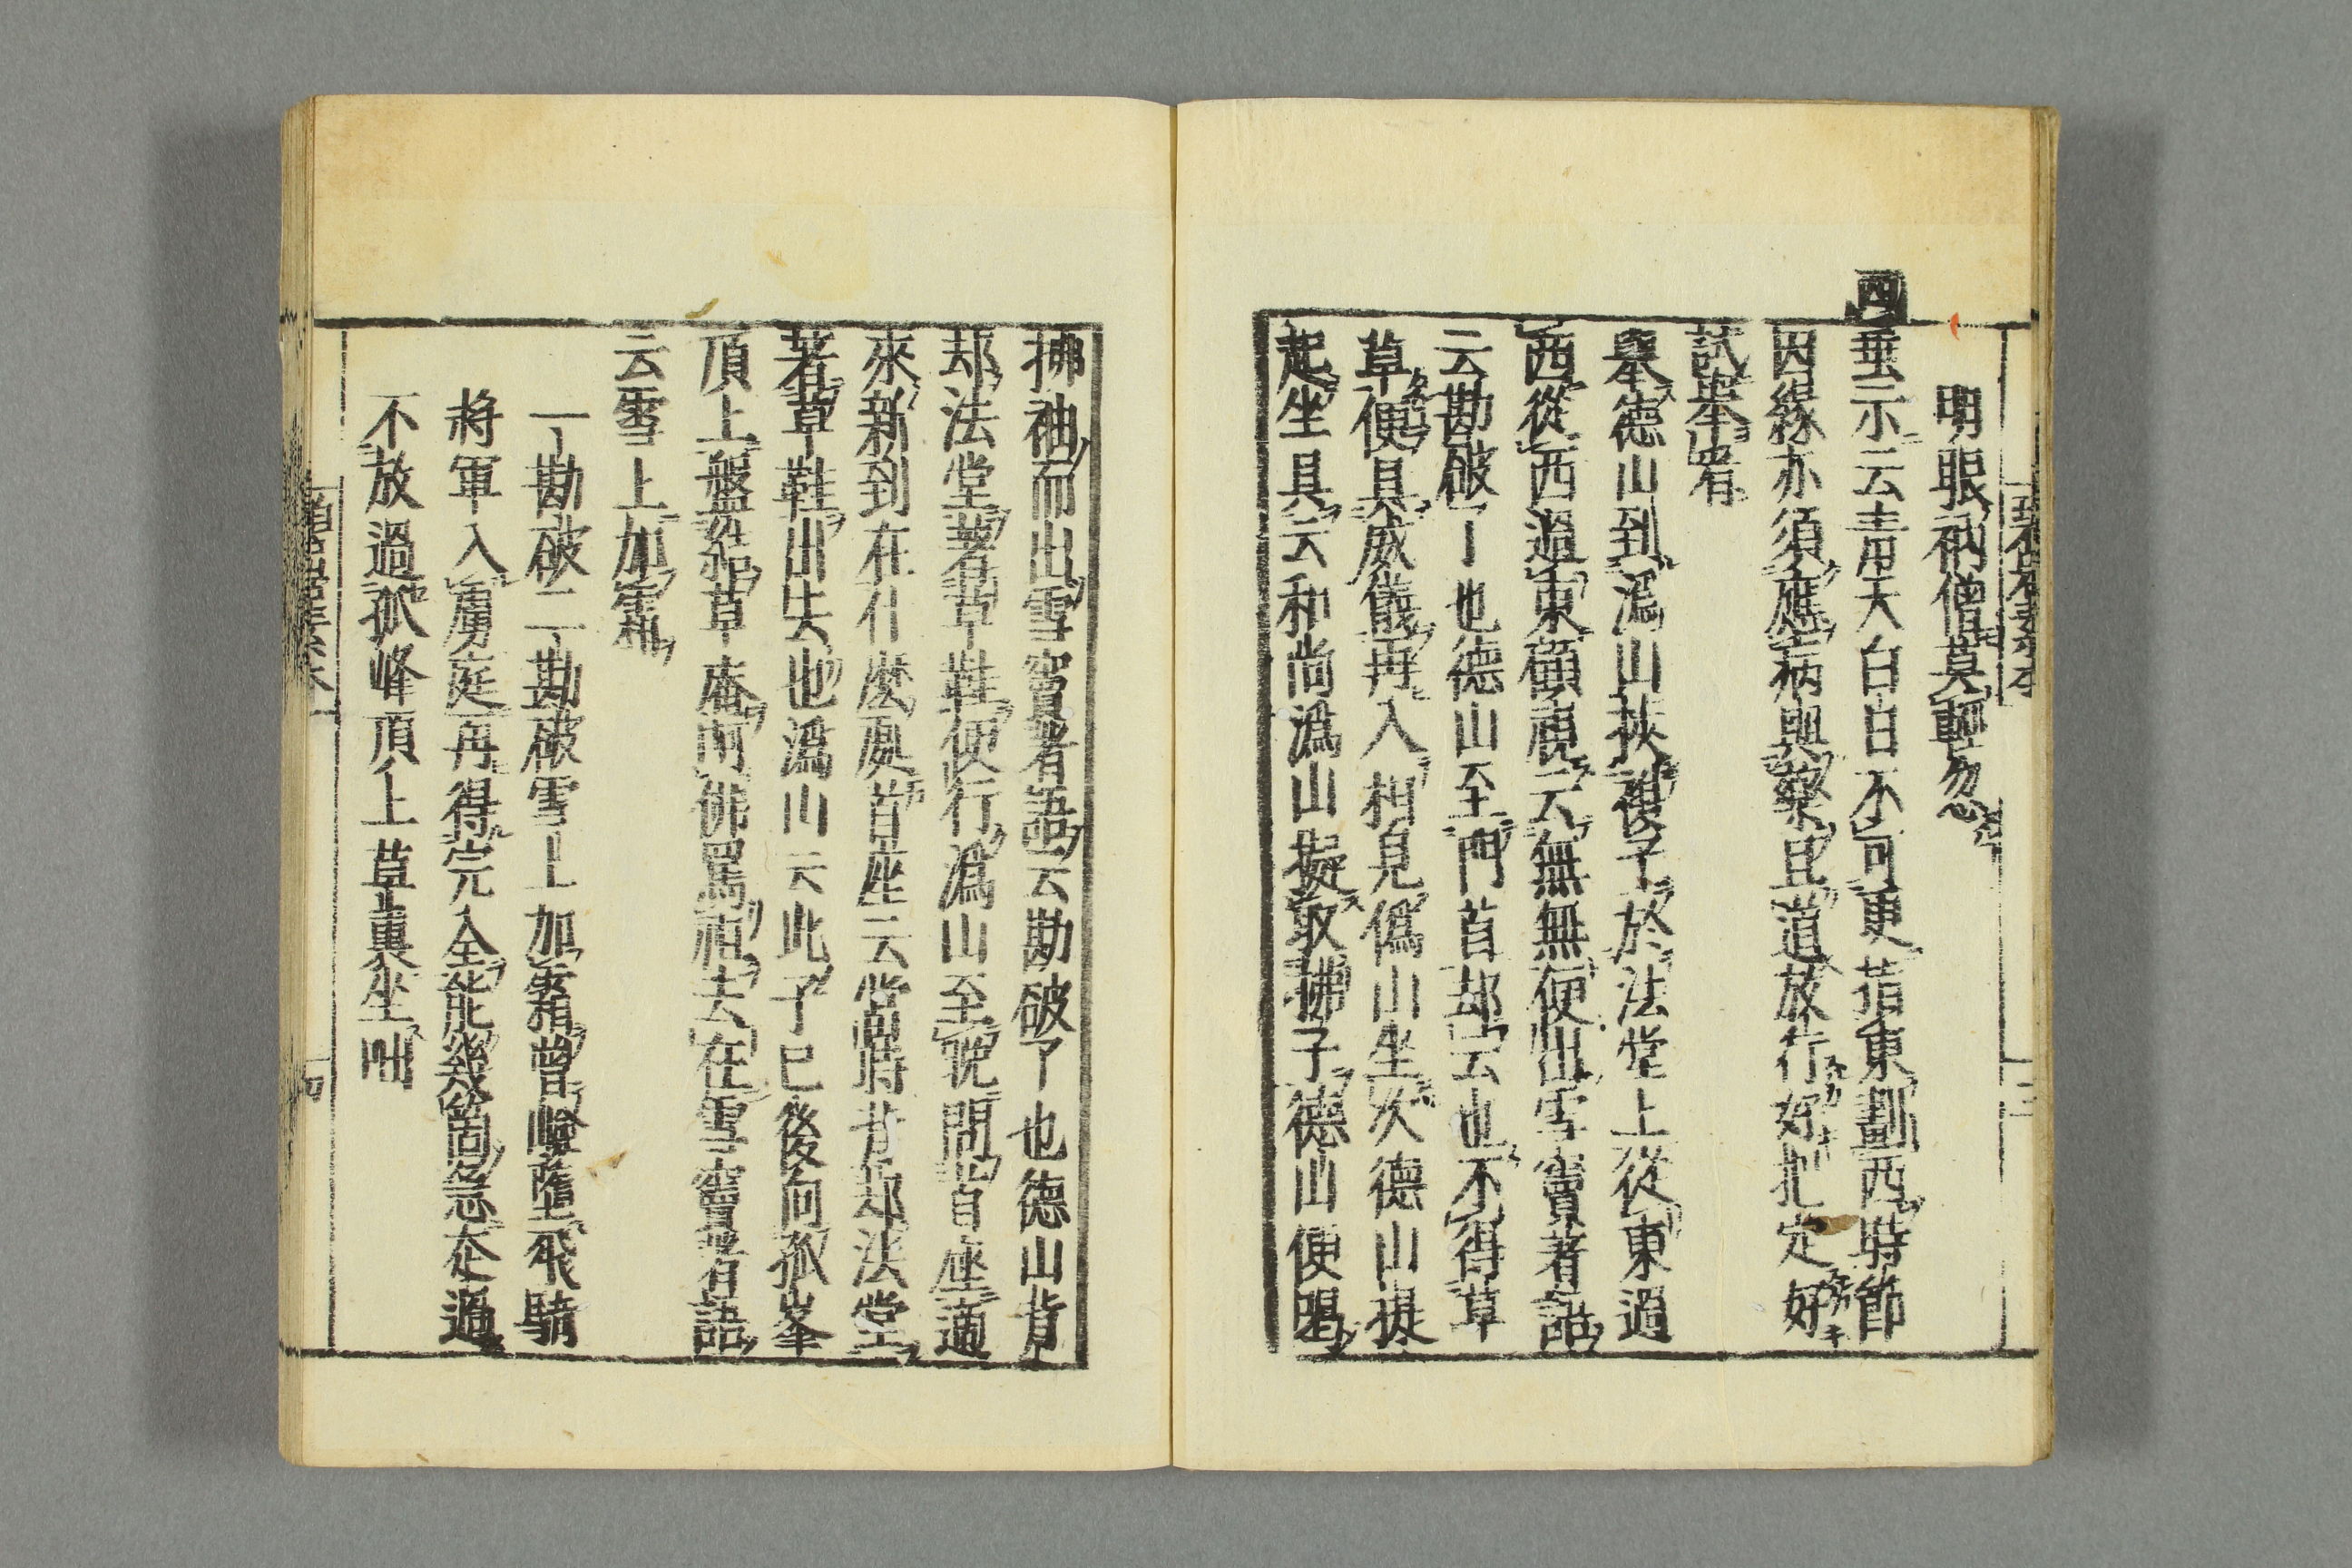 明眼衲僧莫輕忽
四
垂示云青天白日不可更指東劃西時節
因緣亦須應病與藥且道放行好把定好
試舉看
舉德山到潙山挾複子於法堂上從東過
西從西過東顧視云無無便出雪竇著語
云勘破了也德山至門首却云也不得草
草便具威儀再入相見潙山坐次德山提
起坐具云和尚潙山擬取拂子德山便喝
拂袖而出雪竇著語云勘破了也德山背
却法堂著草鞋便行潙山至晚問首座適
來新到在什麽處首座云當時背却法堂
著草鞋出去也潙山云此子已後向孤峯
頂上盤結草庵呵佛罵祖去在雪竇著語
云雪上加霜
一勘破二勘破雪上加霜曾嶮墮飛騎
將軍入虜庭再得完全能幾箇急走過
不放過孤峰頂上草裏坐咄